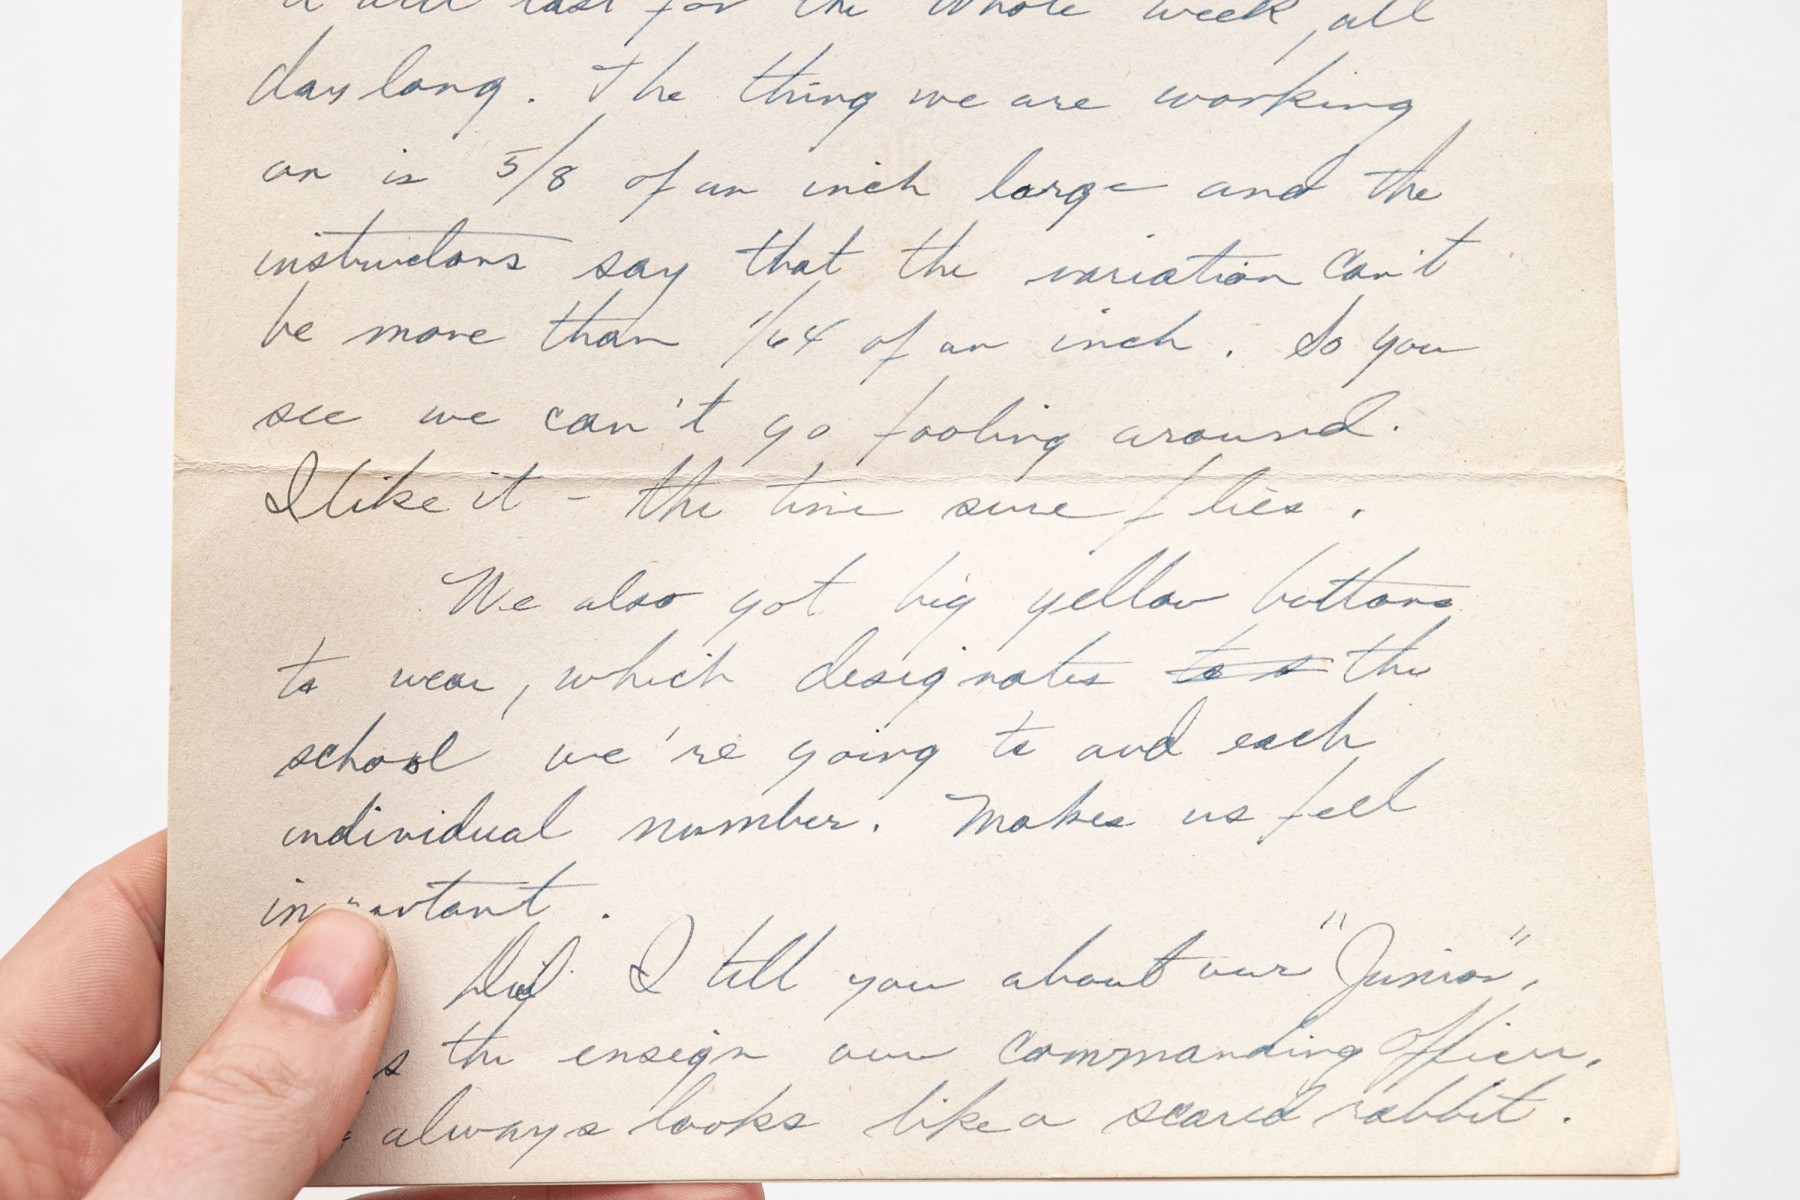 it will last for the whole week, all
day long. The thing we are working
on is 5/8 of an inch large and the
instructors say that the variation can't
be more than 1/64 of an inch. So you
see we can't go fooling around.
I like it - the time sure flies.
We also got big yellow buttons
to wear, which designates to s the
school we're going to and each
individual number. Makes us feel
important.
Did I tell you about our "Junior",
the ensign our commanding officer.
always looks like a scared rabbit.